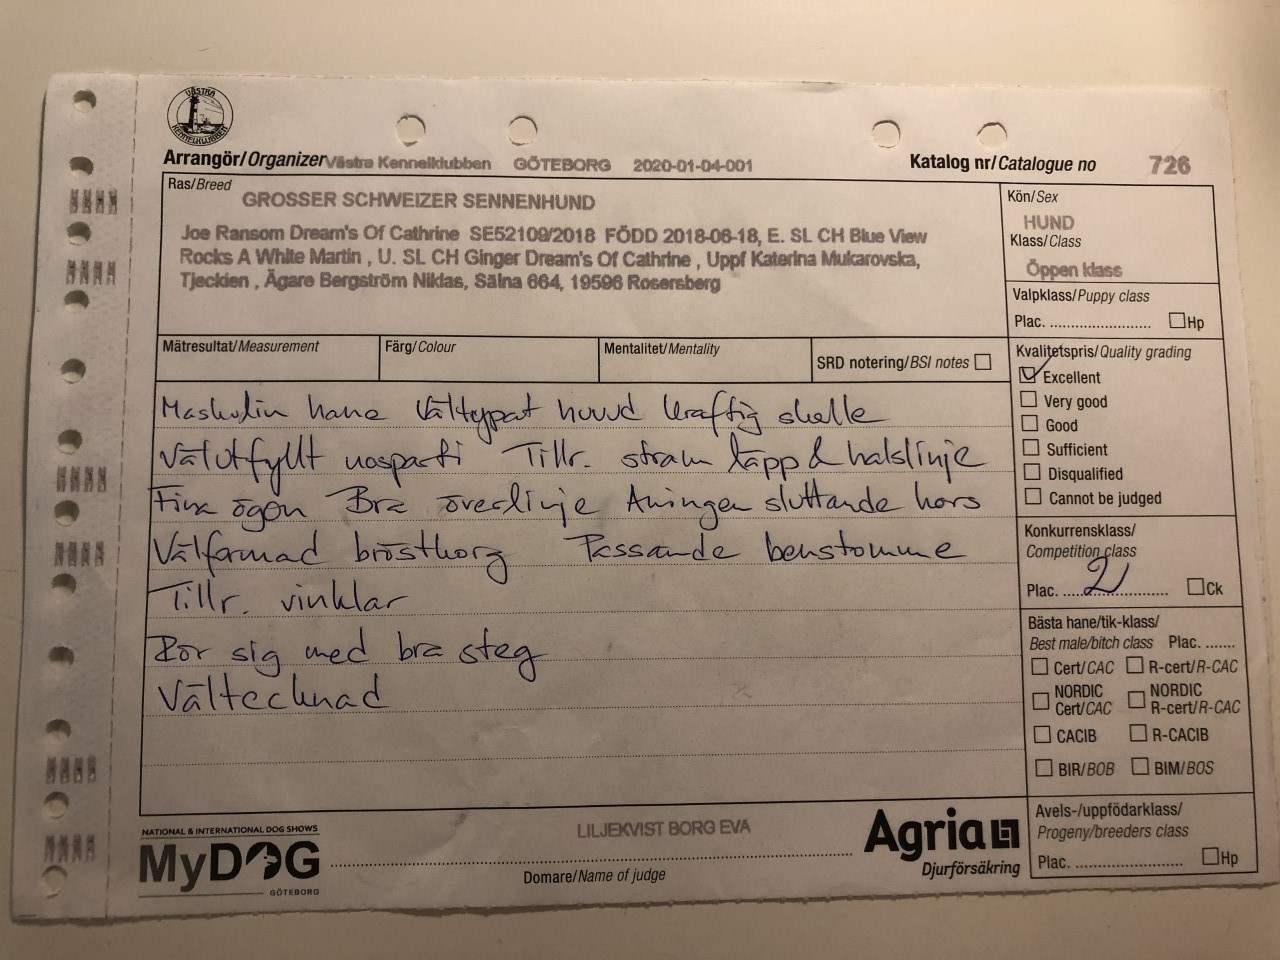 VÄSTRA
KENNELKLUBBEN
Arrangör/Organizer Västra Kennelklubben GÖTEBORG 2020-01-04-001 Katalog nr/Catalogue no 726
Ras/Breed
GROSSER SCHWEIZER SENNENHUND
Joe Ransom Dream's Of Cathrine SE52109/2018 FÖDD 2018-06-18, E. SL CH Blue View
Rocks A White Martin , U. SL CH Ginger Dream's Of Cathrine , Uppf Katerina Mukarovska,
Tjeckien , Ägare Bergström Niklas, Sälna 664, 19596 Rosersberg
Kön/Sex
HUND
Klass/Class
Öppen klass
Valpklass/Puppy class
Plac. ........................ Hp
Mätresultat/Measurement
Färg/Colour
Mentalitet/Mentality
SRD notering/BSI notes
Maskulin hane Vältypat huvud kraftig skalle
Välutfyllt nosparti Tillr. stram läpp & halslinje
Fina ögon Bra överlinje Aningen sluttande kors
Välformad bröstkorg Passande benstomme
Tillr. vinklar
Rör sig med bra steg
Vältecknad
Kvalitetspris/Quality grading
Excellent
Very good
Good
Sufficient
Disqualified
Cannot be judged
Konkurrensklass/
Competition class
Plac. ....2............ Ck
Bästa hane/tik-klass/
Best male/bitch class Plac. .......
Cert/CAC R-cert/R-CAC
NORDIC Cert/CAC NORDIC R-cert/R-CAC
CACIB R-CACIB
BIR/BOB BIM/BOS
Avels-/uppfödarklass/
Progeny/breeders class
Plac. ........................ Hp
NATIONAL & INTERNATIONAL DOG SHOWS
MyDOG
GÖTEBORG
LILJEKVIST BORG EVA
Domare/Name of judge
Agria
Djurförsäkring